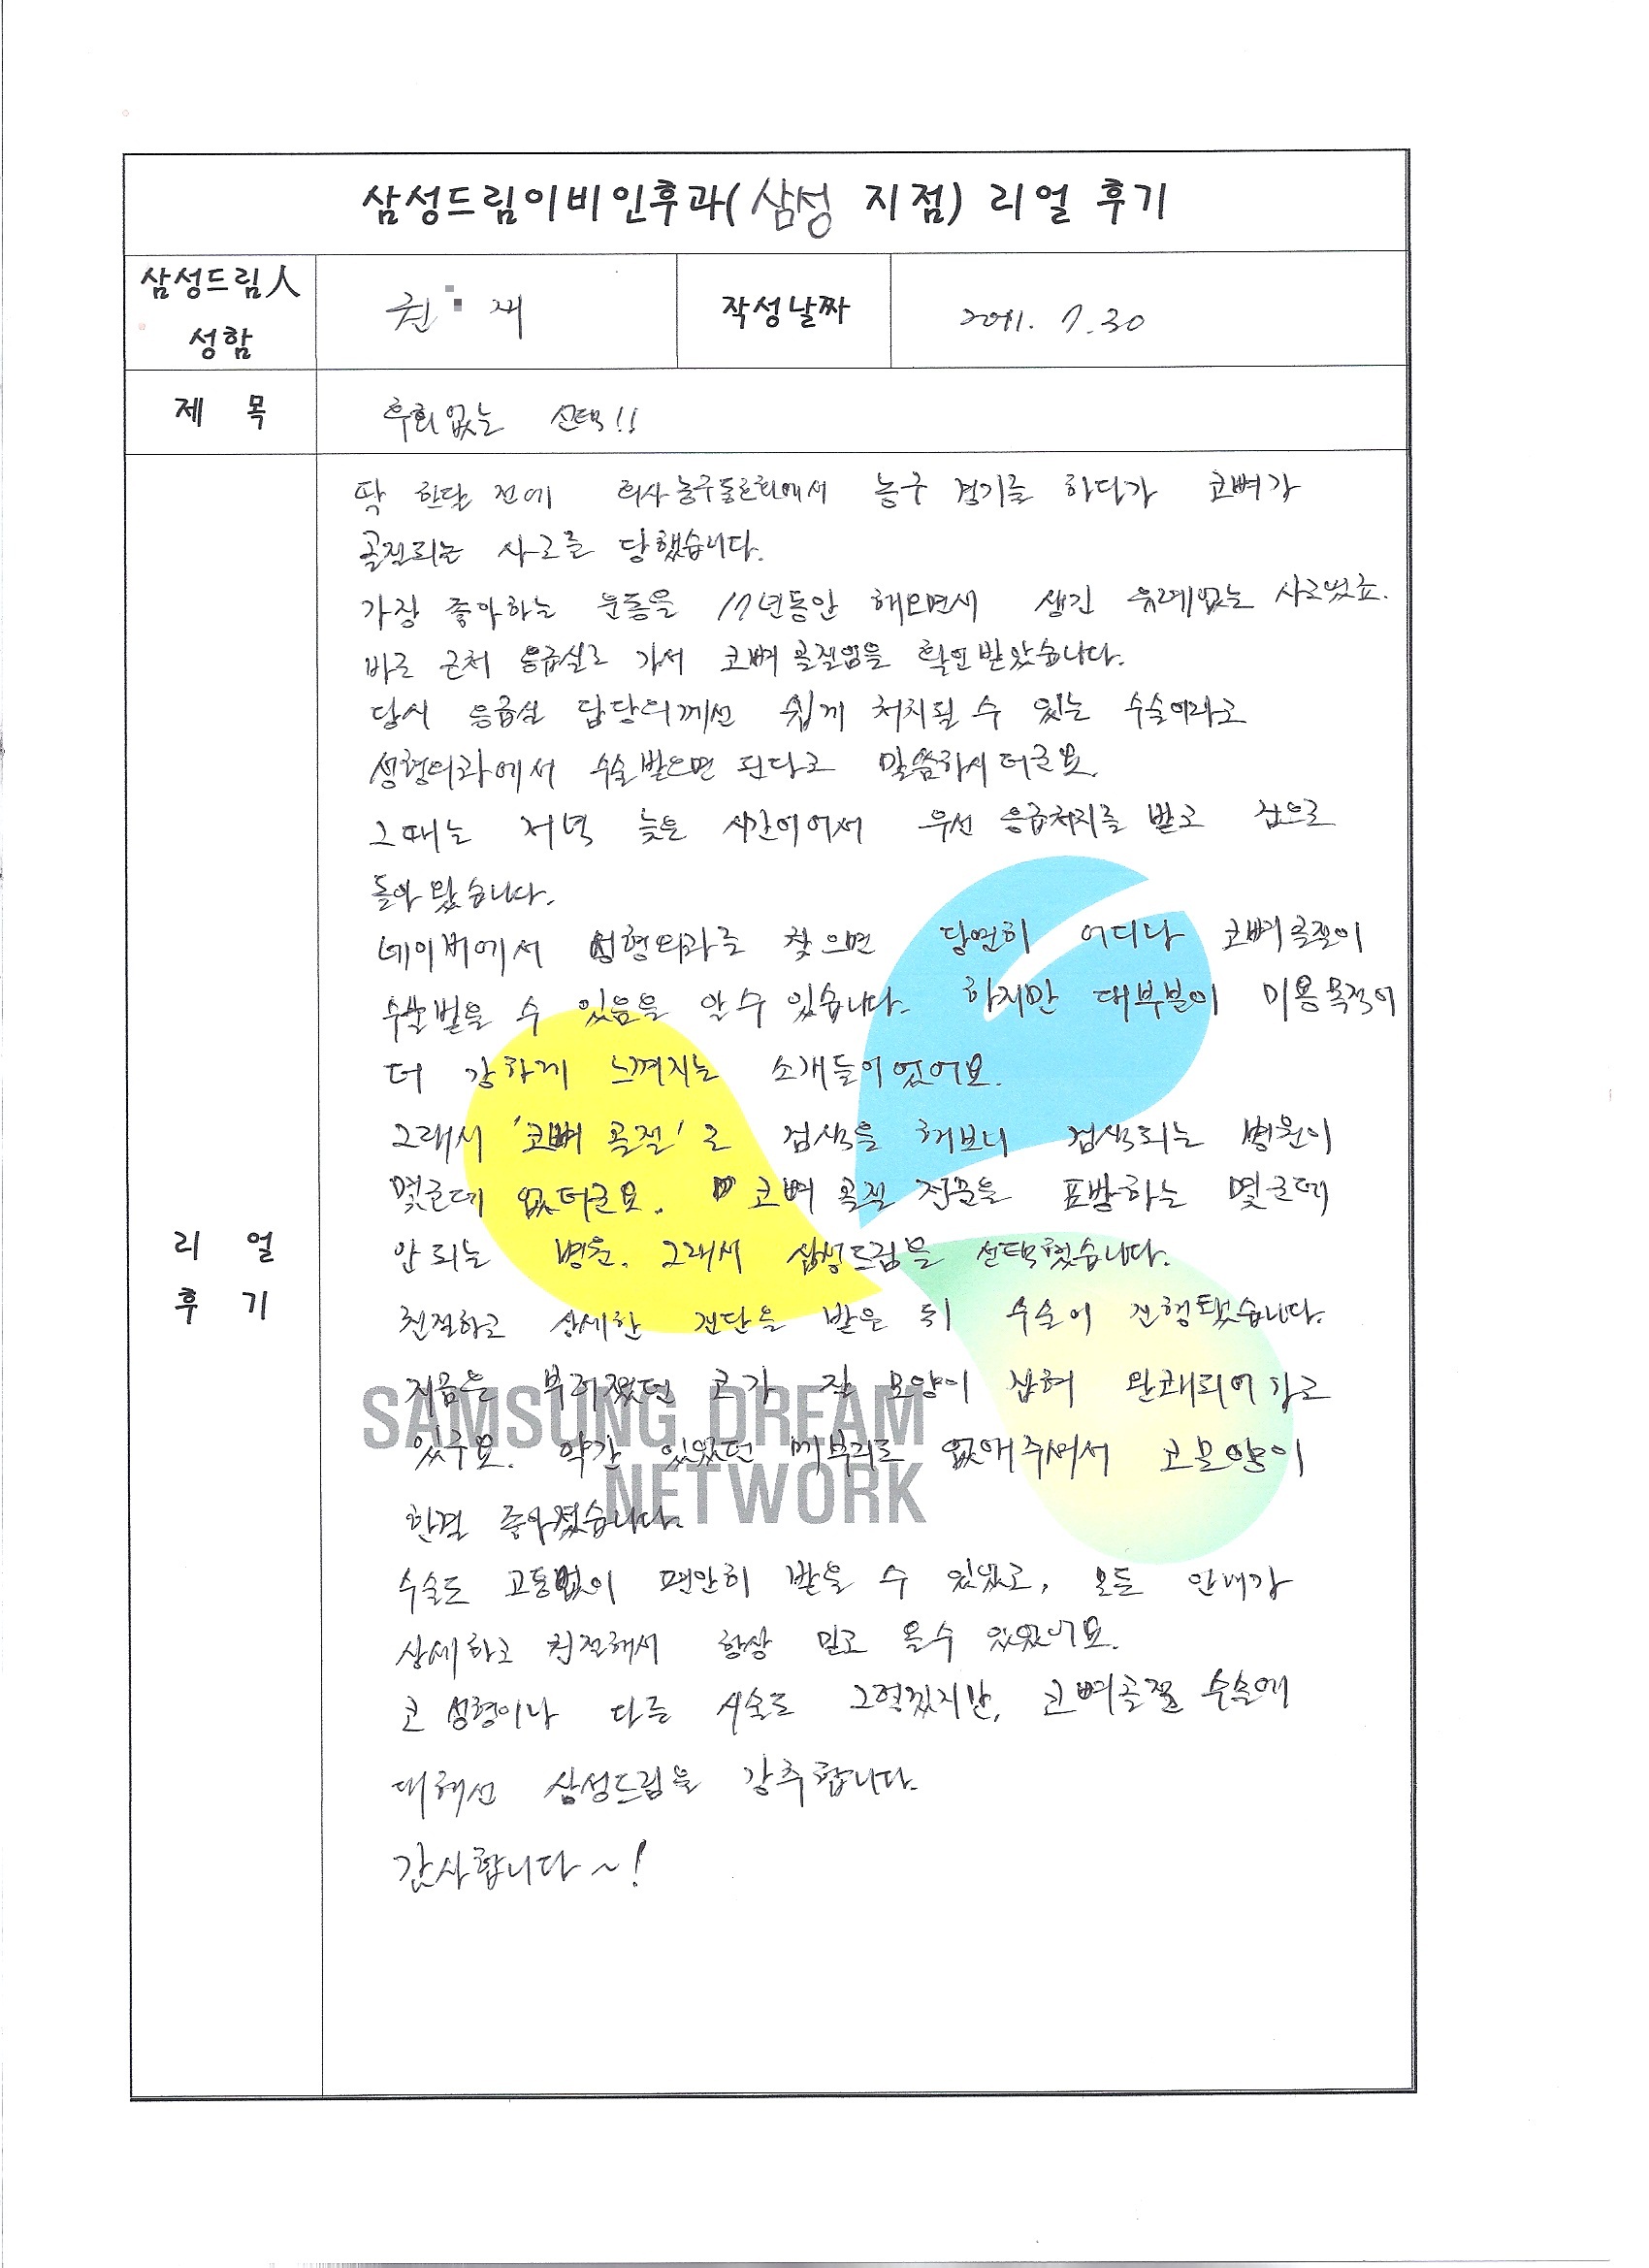 삼성드림이비인후과(삼성 지점) 리얼 후기
삼성드림人
성함
권 재
작성날짜
2011. 7. 30
제 목
후회없는 선택!!
딱 한달 전에 회사농구동호회에서 농구 경기를 하다가 코뼈가
골절되는 사고를 당했습니다.
가장 좋아하는 운동을 17년동안 해오면서 생긴 유례없는 사고였죠.
바로 근처 응급실로 가서 코뼈 골절임을 확인받았습니다.
당시 응급실 담당의께선 쉽게 처치될 수 있는 수술이라고
성형외과에서 수술받으면 된다고 말씀하시더군요.
그때는 저녁 늦은 시간이어서 우선 응급처치를 받고 집으로
돌아왔습니다.
네이버에서 성형외과를 찾으면 당연히 어디나 코뼈골절이
수술받을 수 있음을 알 수 있습니다. 하지만 대부분이 미용목적이
더 강하게 느껴지는 소개들이었어요.
그래서 '코뼈 골절'로 검색을 해보니 검색되는 병원이
몇군데 없더군요. 코뼈 골절 전문을 표방하는 몇군데
안되는 병원. 그래서 삼성드림을 선택했습니다.
친절하고 상세한 진단을 받은 뒤 수술이 진행됐습니다.
지금은 부러졌던 코가 잘 모양이 잡혀 완쾌되어가고
있구요. 약간 있었던 메부리도 없애주셔서 코모양이
한결 좋아졌습니다.
수술도 고통없이 편안히 받을 수 있었고, 모든 안내가
상세하고 친절해서 항상 믿고 올수 있었어요.
코 성형이나 다른 시술도 그렇겠지만, 코뼈골절 수술에
대해선 삼성드림을 강추합니다.
감사합니다~!
리 얼
후 기
SAMSUNG DREAM
NETWORK